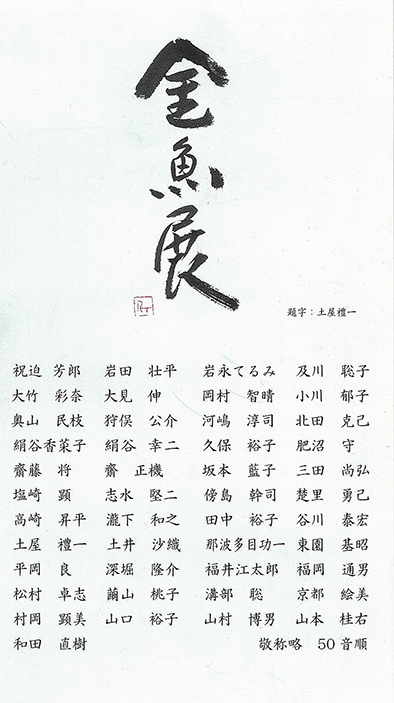 金魚展
題字：土屋禮一
祝迫　芳郎　岩田　壮平　岩永てるみ　及川　聡子
大竹　彩奈　大見　伸　岡村　智晴　小川　郁子
奥山　民枝　狩俣　公介　河嶋　淳司　北田　克己
絹谷香菜子　絹谷　幸二　久保　裕子　肥沼　守
齋藤　将　齋　正機　坂本　藍子　三田　尚弘
塩崎　顕　志水　堅二　傍島　幹司　楚里　勇己
高崎　昇平　瀧下　和之　田中　裕子　谷川　泰宏
土屋　禮一　土井　沙織　那波多目功一　東園　基昭
平岡　良　深堀　隆介　福井江太郎　福岡　通男
松村　卓志　繭山　桃子　溝部　聡　京都　絵美
村岡　顕美　山口　裕子　山村　博男　山本　桂右
和田　直樹　敬称略　50音順